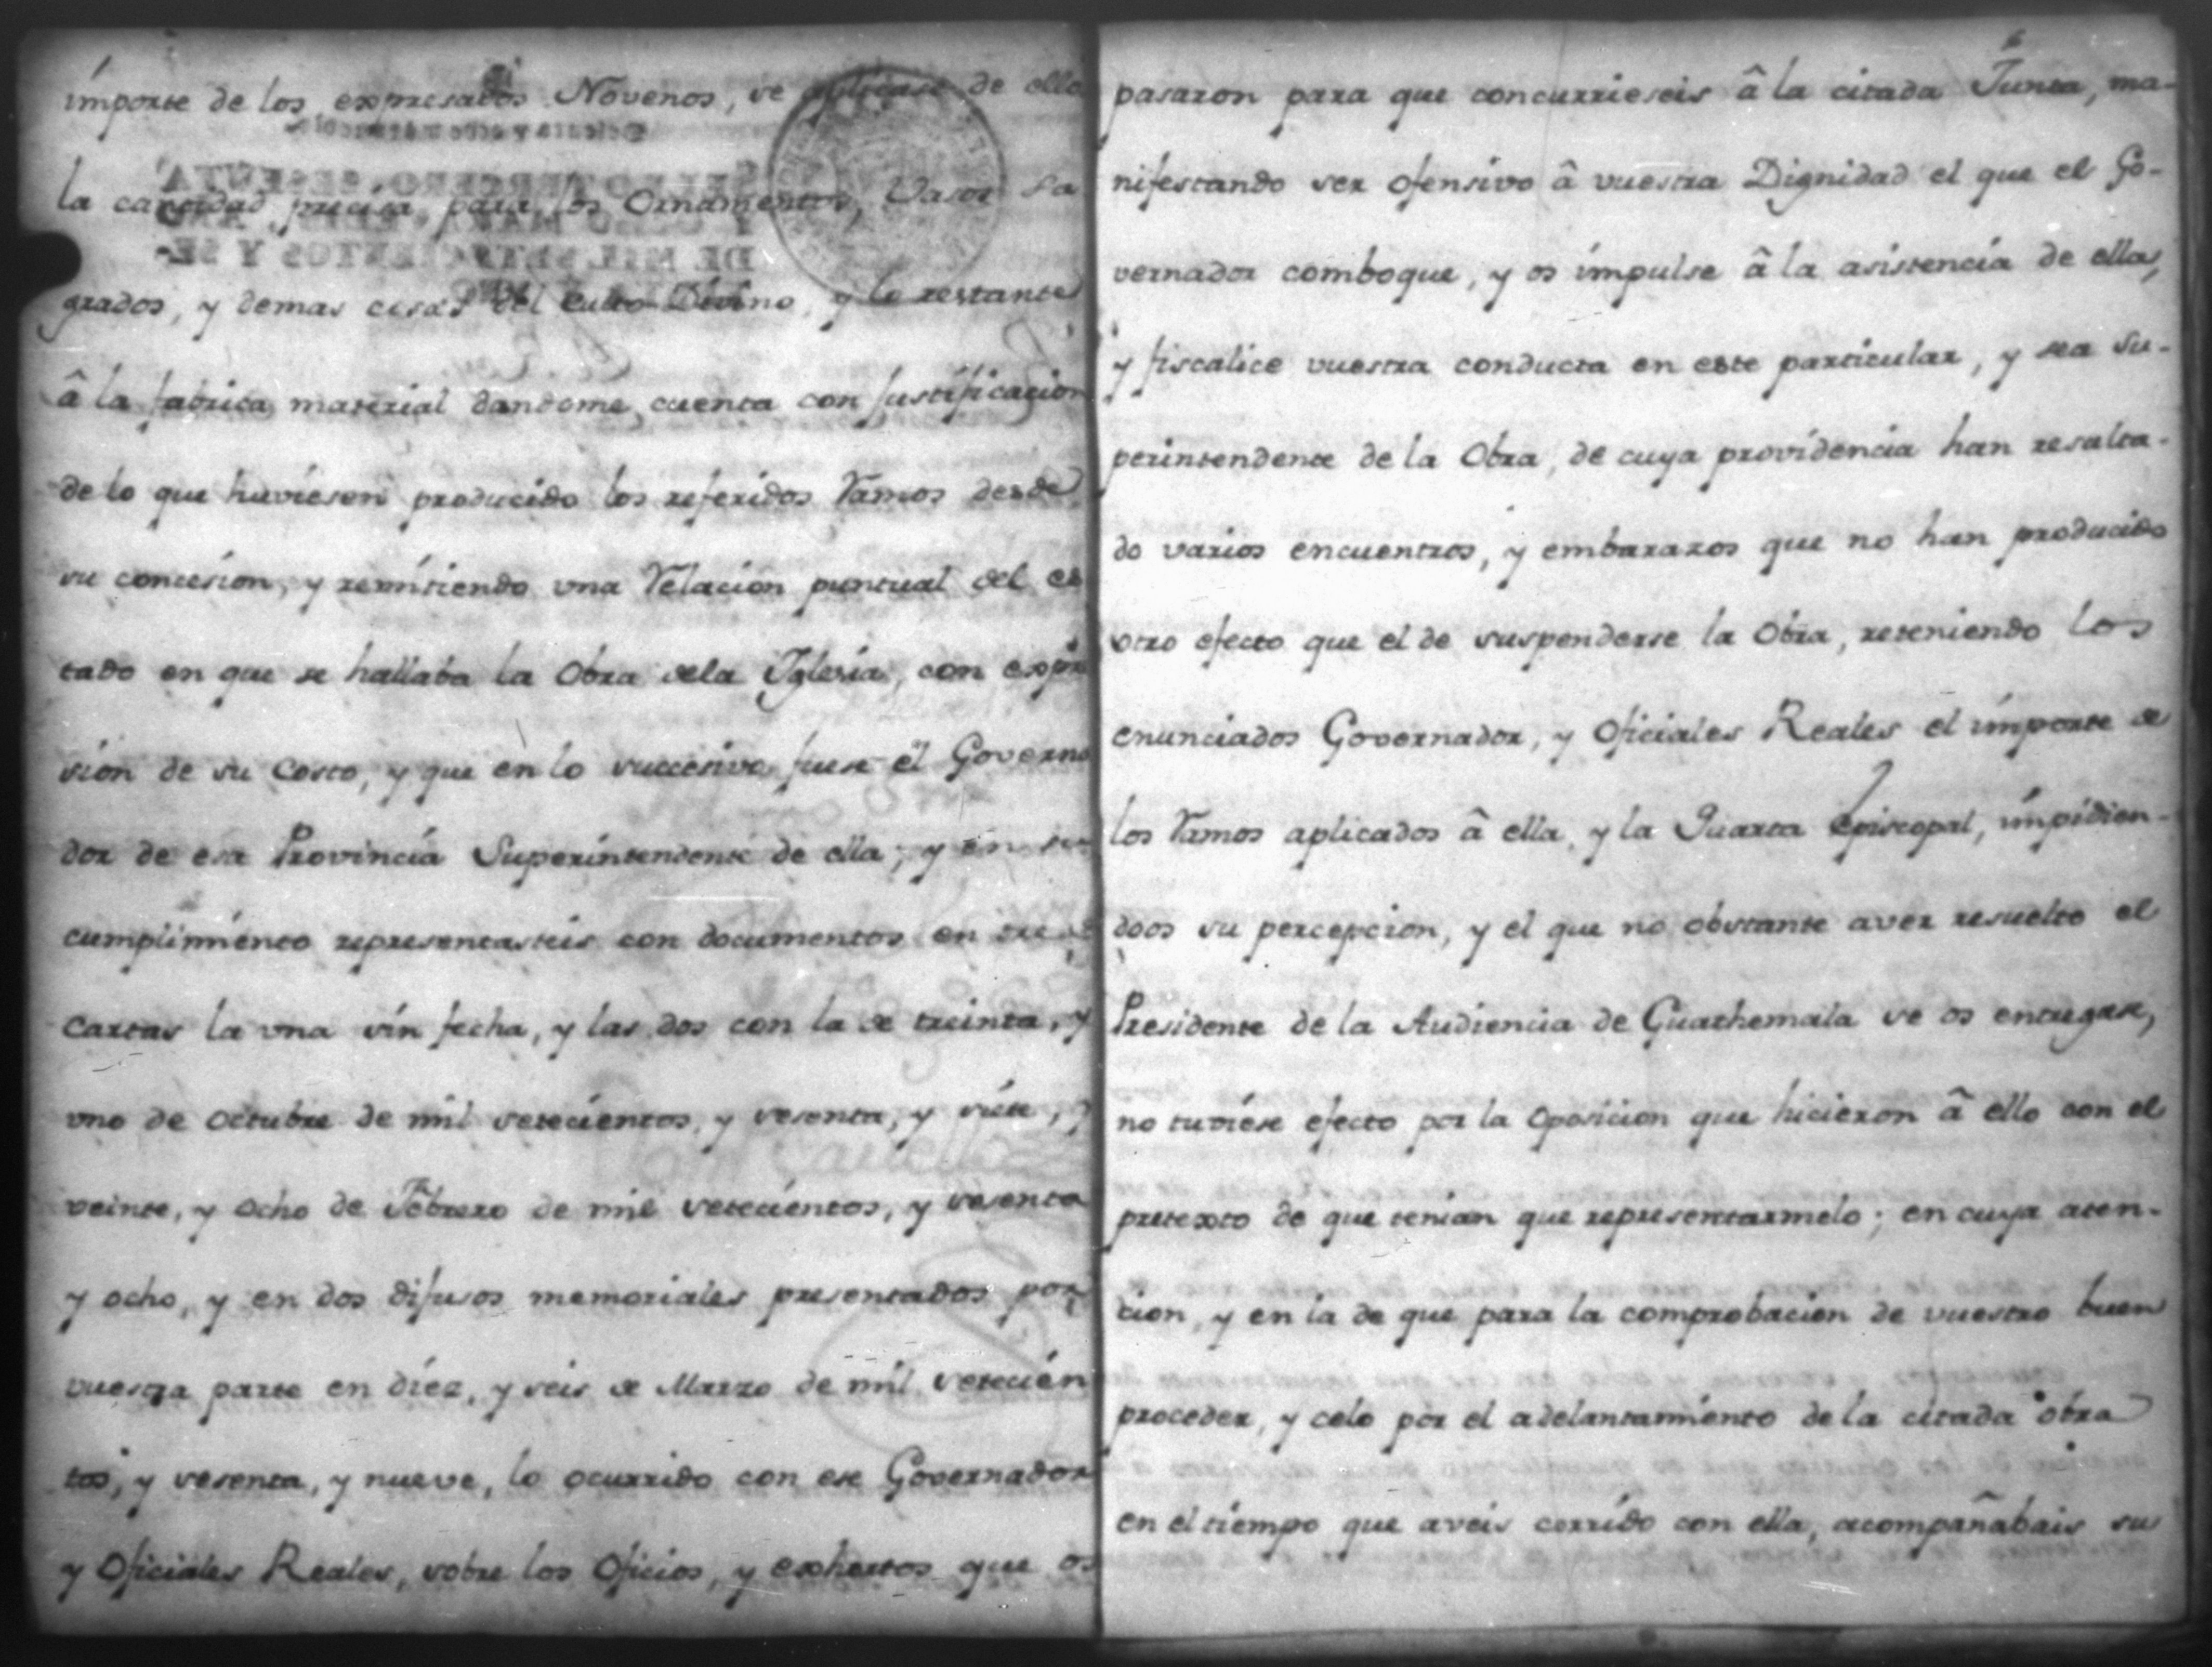 importe de los expresados Novenos, se aplicase de ello
la cantidad precisa para los Ornamentos, Vasos Sa
grados, y demas cosas del Culto Divino, y lo restante
â la fabrica material dandome cuenta con justificacion
de lo que huviesen producido los referidos Ramos desde
su concesion, y remitiendo una Relacion puntual del es
tado en que se hallaba la Obra dela Iglesia, con expre
sion de su Costo, y que en lo successivo fuese el Governa
dor de esa Provincia Superintendente de ella; y en su
cumplimiento representasteis con documentos en tres
Cartas la una sin fecha, y las dos con la de treinta, y
uno de Octubre de mil setecientos, y sesenta, y siete, y
veinte, y ocho de Febrero de mil setecientos, y sesenta
y ocho, y en dos difusos memoriales presentados por
vuestra parte en diez, y seis de Marzo de mil setecien
tos, y sesenta, y nueve, lo ocurrido con ese Governador
y Oficiales Reales, sobre los Oficios, y exhortos que os
pasaron para que concurrieseis â la citada Junta, ma-
nifestando ser ofensivo â vuestra Dignidad el que el Go-
vernador comboque, y os impulse â la asistencia de ellas,
y fiscalice vuestra conducta en este particular, y sea Su-
perintendente de la Obra, de cuya providencia han resulta-
do varios encuentros, y embarazos que no han producido
otro efecto que el de suspenderse la Obra, reteniendo los
enunciados Governador, y Oficiales Reales el importe de
los Ramos aplicados â ella, y la Quarta Episcopal, impidien-
doos su percepcion, y el que no obstante aver resuelto el
Presidente de la Audiencia de Guathemala se os entregase,
no tuviese efecto por la Oposicion que hicieron â ello con el
pretexto de que tenian que representarmelo; en cuya aten-
cion, y en la de que para la comprobacion de vuestro buen
proceder, y celo por el adelantamiento de la citada obra
en el tiempo que aveis corrido con ella, acompañabais su